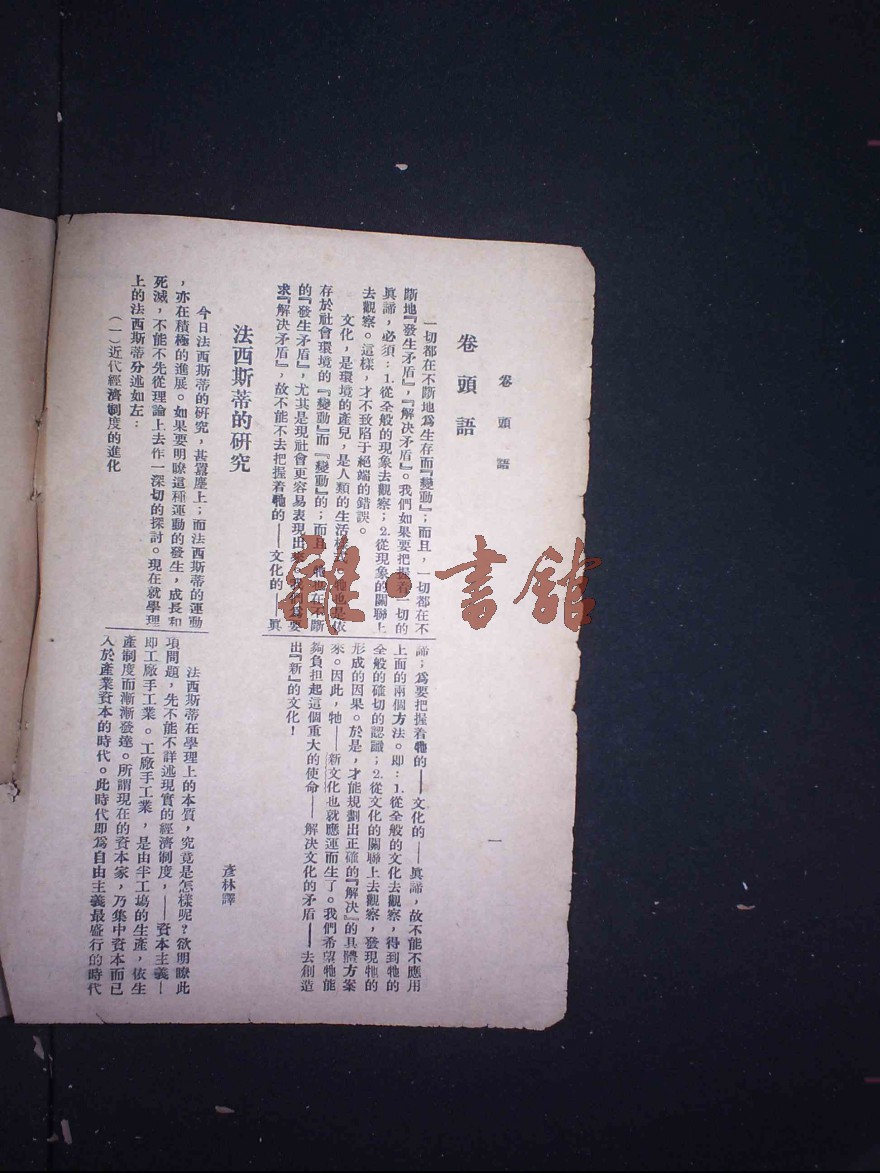 卷頭語
一
卷頭語
一切都在不斷地爲生存而『變動』；而且，一切都在不
斷地『發生矛盾』，『解決矛盾』。我們如果要把握着一切的
眞諦，必須：1.從全般的現象去觀察；2.從現象的關聯上
去觀察。這樣，才不致陷于絕端的錯誤。
文化，是環境的產兒，是人類的生活樣式，牠也是依
存於社會環境的『變動』而『變動』的；而且，牠也在不斷
的『發生矛盾』，尤其是現社會更容易表現出來。我們爲要
求『解決矛盾』，故不能不去把握着牠的——文化的——眞
諦；爲要把握着牠的——文化的——眞諦，故不能不應用
上面的兩個方法。卽：1.從全般的文化去觀察，得到牠的
全般的確切的認識；2.從文化的關聯上去觀察，發現牠的
形成的因果。於是，才能規劃出正確的『解決』的具體方案
來。因此，牠——新文化也就應運而生了。我們希望牠能
夠負担起這個重大的使命——解決文化的矛盾——去創造
出『新』的文化！
法西斯蒂的研究
彥林譯
今日法西斯蒂的研究，甚囂塵上；而法西斯蒂的運動
，亦在積極的進展。如果要明瞭這種運動的發生，成長和
死滅，不能不先從理論上去作一深切的探討。現在就學理
上的法西斯蒂分述如左：
（一）近代經濟制度的進化
法西斯蒂在學理上的本質，究竟是怎樣呢？欲明瞭此
項問題，先不能不詳述現實的經濟制度，——資本主義—
卽工廠手工業。工廠手工業，是由半工塲的生產，依生
產制度而漸漸發達。所謂現在的資本家，乃集中資本而已
入於產業資本的時代。此時代卽爲自由主義最盛行的時代
雜·書館